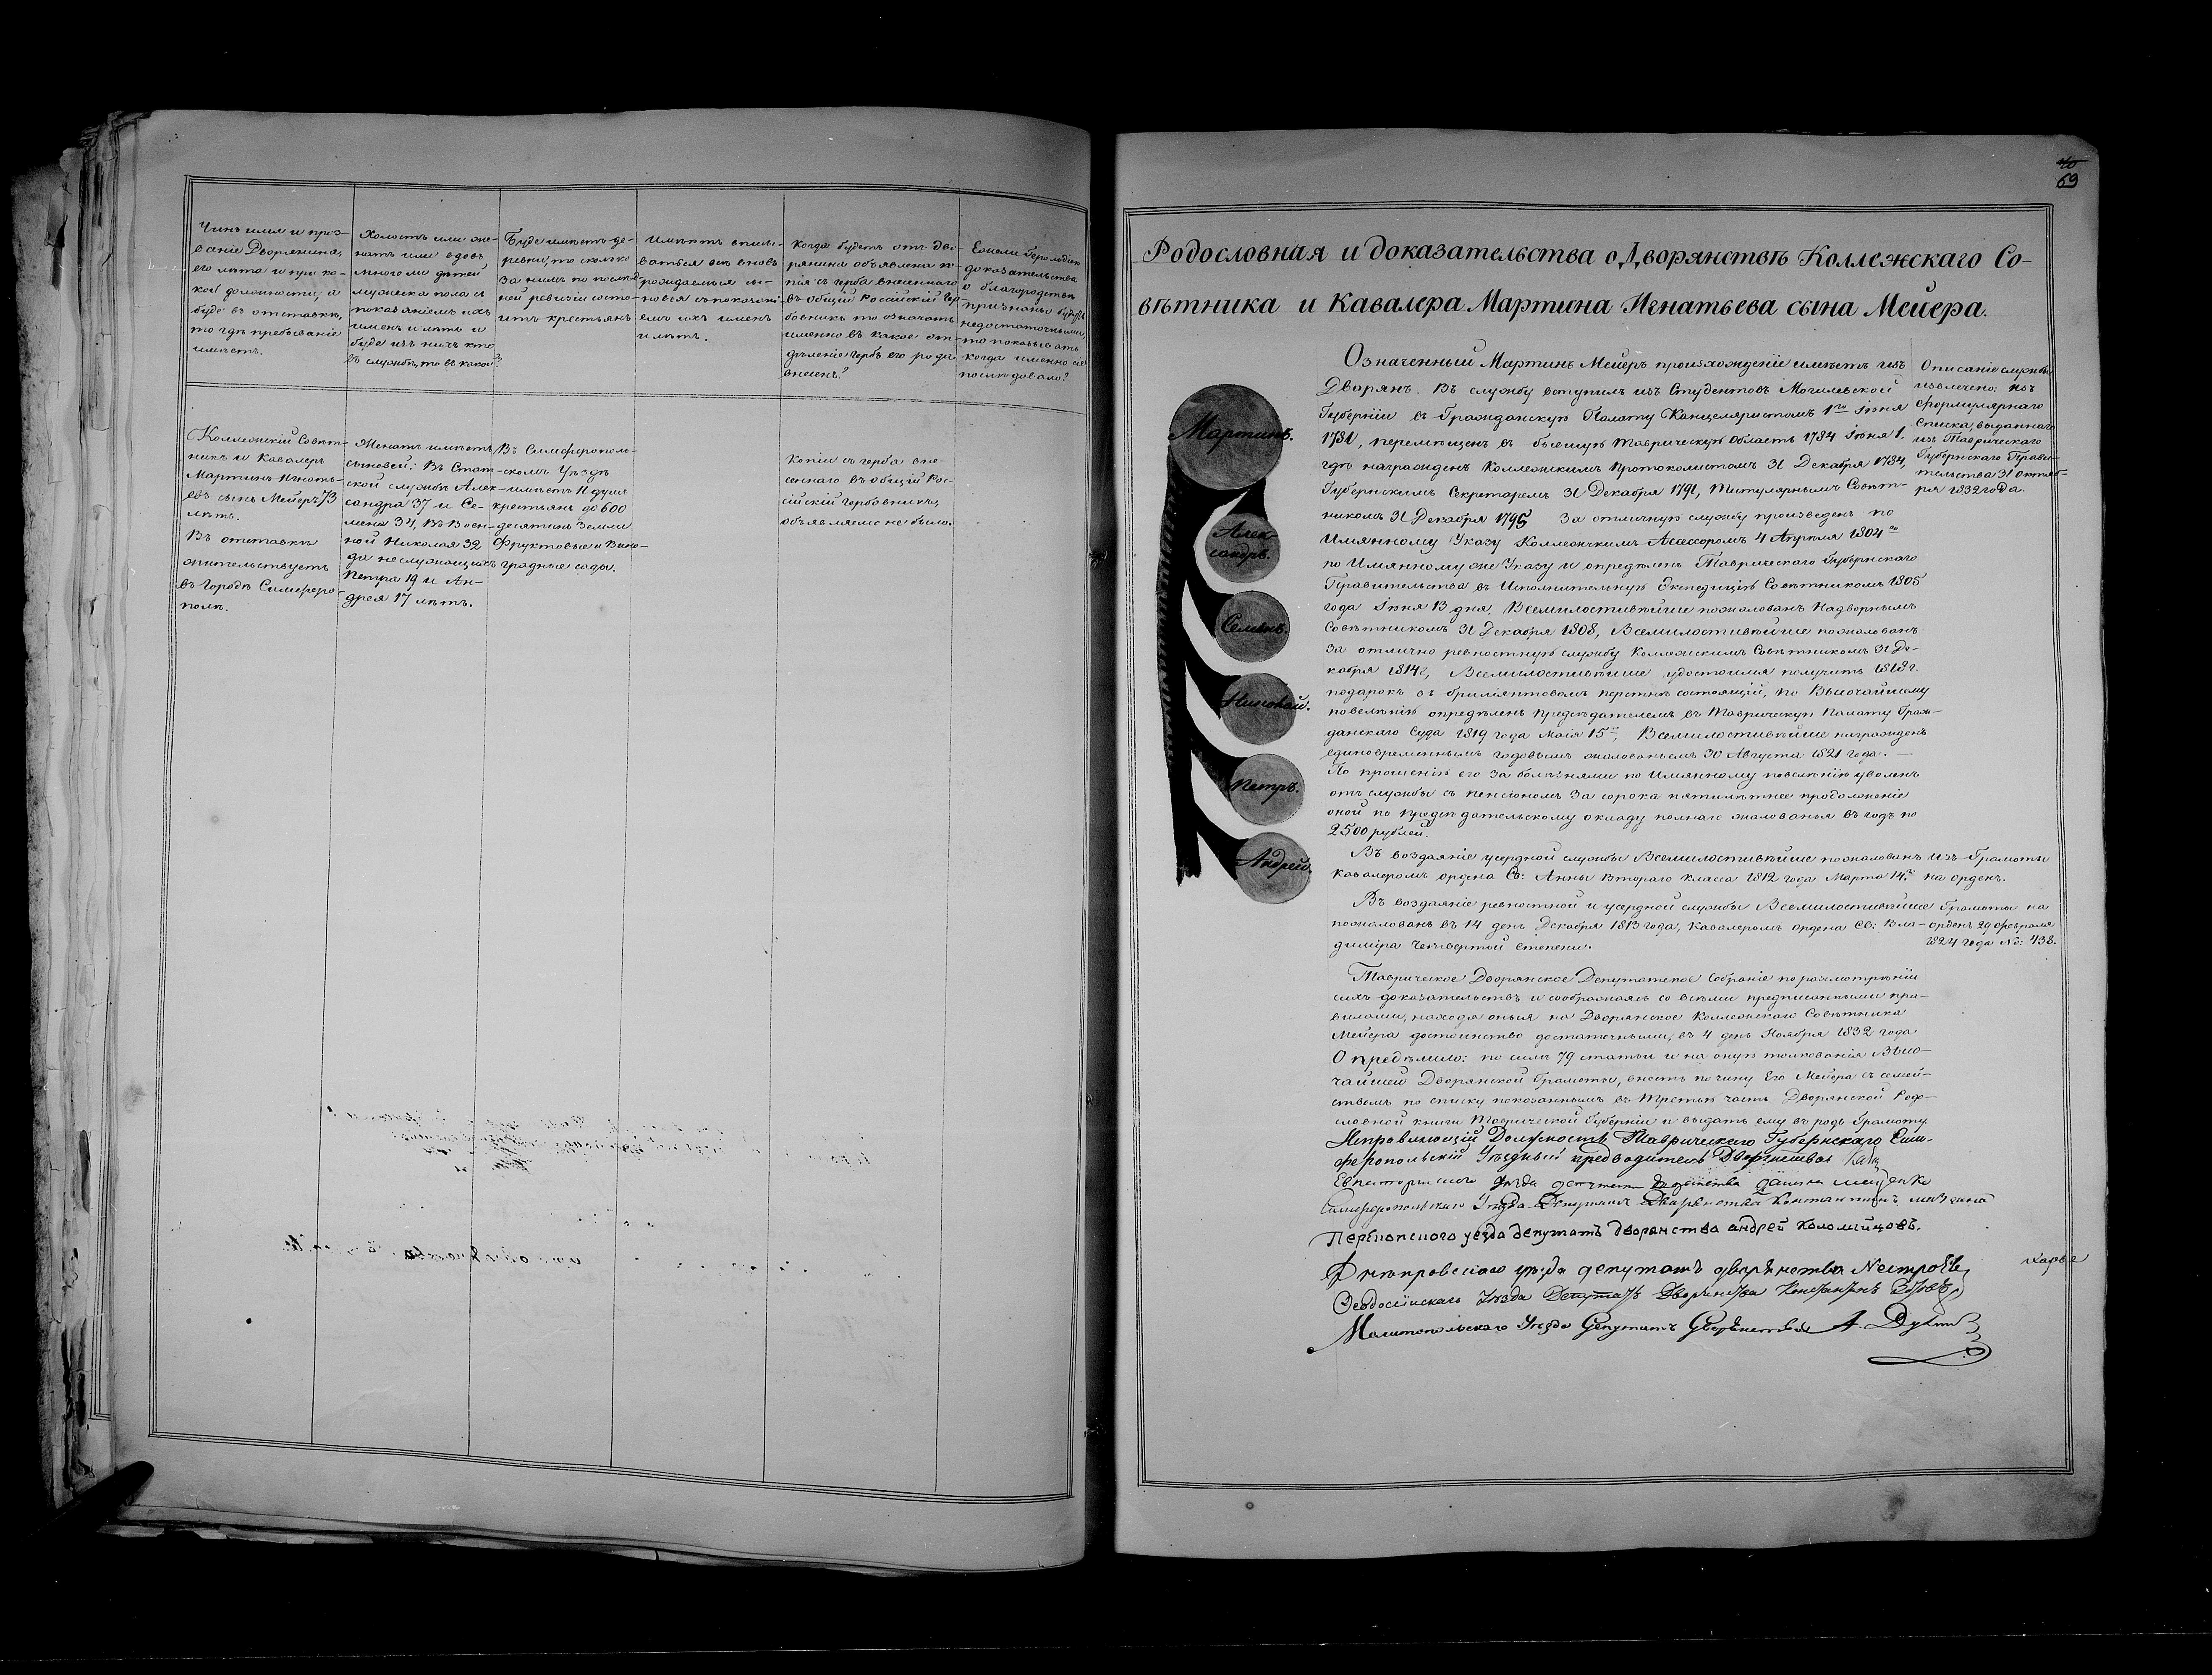 Чинъ имя и проз-
ваніе Дворянина,
его лѣта и при ка-
кой должности, а
буде въ отставкѣ,
то гдѣ пребываніе
имѣетъ.
Холостъ или же-
натъ или вдовъ
много ли дѣтей
мужеска пола съ
показаніемъ ихъ
именъ и лѣтъ и
буде изъ нихъ кто
въ службѣ, то въ какой?
Буде имѣетъ де-
ревни, то сколько
за нимъ по послѣд-
ней ревизіи состо-
итъ крестьянъ
Имѣютъ вписы-
ваться вновь
рождаемыя сы-
новья съ показані-
емъ ихъ именъ
и лѣтъ.
Когда будетъ отъ дво-
рянина объявлена ко-
пія съ герба внесеннаго
въ общій Россійскій гер-
бовникъ то означать
именно въ какое от-
дѣленіе гербъ его рода
внесенъ?
Ежели Герольдіею
доказательства
о благородствѣ
признаны будутъ
недостаточными,
то показывать
когда именно сіе
послѣдовало?
Коллежскій Совѣт-
никъ и Кавалеръ
Мартинъ Игнать-
евъ сынъ Мейеръ 73
лѣтъ.
Въ отставкѣ
жительствуетъ
въ городѣ Симферо-
полѣ.
Женатъ имѣетъ
сыновей: Въ Стат-
ской службѣ Алек-
сандра 37 и Се-
мена 34, Въ Воен-
ной Николая 32
да неслужащихъ
Петра 19 и Ан-
дрея 17 лѣтъ.
Въ Симферополь-
скомъ Уѣздѣ
имѣетъ 11 душъ
крестьянъ до 600
десятинъ земли
Фруктовые и Вино-
градные сады.
Копіи съ герба вне-
сеннаго въ общій Рос-
сійскій гербовникъ,
объявляемо не было.
40
69
Родословная и доказательства о Дворянствѣ Коллежскаго Со-
вѣтника и Кавалера Мартина Игнатьева сына Мейера.
Мартинъ.
Алек-
сандръ.
Семенъ.
Николай.
Петръ.
Андрей.
Означенный Мартинъ Мейеръ произхожденіе имѣетъ изъ
Дворянъ. Въ службу вступилъ изъ Студентовъ Могилевской
Губерніи въ Гражданскую Палату Канцеляристомъ 1го Іюня
1781, перемѣщенъ въ бывшую Таврическую Область 1784 Іюня 1.
гдѣ награжденъ Коллежскимъ Протоколистомъ 31 Декабря 1784,
Губернскимъ Секретаремъ 31 Декабря 1791, Титулярнымъ Совѣт-
никомъ 31 Декабря 1795 За отличную службу произведенъ по
Имянному Указу Коллежскимъ Асессоромъ 4 Апрѣля 1804го
по Имянному же Указу и опредѣленъ Таврическаго Губернскаго
Правительства въ Исполнительную Экспедицію Совѣтникомъ 1805
года Іюня 13 дня. Всемилостивѣйше пожалованъ Надворнымъ
Совѣтникомъ 31 Декабря 1808, Всемилостивѣйше пожалованъ
за отлично ревностную службу Коллежскимъ Совѣтникомъ 31 Де-
кабря 1814г, Всемилостивѣйше удостоился получить 1818г.
подарокъ въ бриліянтовомъ перстнѣ состоящій, по Высочайшему
повелѣнію опредѣленъ Предсѣдателемъ въ Таврическую Палату Граж-
данскаго Суда 1819 года Маія 15го, Всемилостивѣйше награжденъ
единовременнымъ годовымъ жалованьемъ 30 Августа 1821 года. —
По прошенію его за болѣзнями по Имянному повелѣнію уволенъ
отъ службы съ пенсіономъ за сорока пятилѣтнее продолженіе
оной по предсѣдательскому окладу полнаго жалованья въ годъ по
2500 рублей.
Описаніе службы
извлечено: изъ
формулярнаго
списка, выданнаго
изъ Таврическаго
Губернскаго Прави-
тельства 31 октяб-
ря 1832 года.
Въ воздаяніе усердной службы Всемилостивѣйше пожалованъ
кавалеромъ ордена Св: Анны втораго класса 1812 года Марта 14го
изъ Грамоты
на орденъ.
Въ воздаяніе ревностной и усердной службы Всемилостивѣйше
пожалованъ въ 14 день Декабря 1813 года, Кавалеромъ ордена Св: Вла-
диміра четвертой степени.
Грамоты на
орденъ 29 февраля
1824 года №: 438.
Таврическое Дворянское Депутатское Собраніе по разсмотрѣніи
сихъ доказательствъ и соображаясь со всѣми предписанными пра-
вилами, находя оныя на Дворянское Коллежскаго Совѣтника
Мейера достоинство достаточными, въ 4 день Ноября 1832 года
Опредѣлило: по силѣ 79 статьи и на оную толкованія Высо-
чайшей Дворянской Грамоты, внесть по чину Его Мейера съ семей-
ствомъ по списку показаннымъ въ Третью часть Дворянской Родо-
словной книги Таврической Губерніи и выдать ему въ родъ Грамоту
Исправляющій Должность Таврическаго Губернскаго Сим-
феропольскій Уѣздный предводитель Дворянства
Евпаторійскаго уѣзда депутатъ дворянства
Симферопольскаго Уѣзда Депутатъ Дворянства Константинъ
Перекопского уезда депутатъ дворянства андрей Коломійцовъ.
Днѣпровскаго уѣзда депутатъ дворянства Нестроевъ
Ѳеодосійскаго Уѣзда Депутатъ Дворянства Константинъ
Мелитопольскаго Уѣзда Депутатъ Дворянства А.